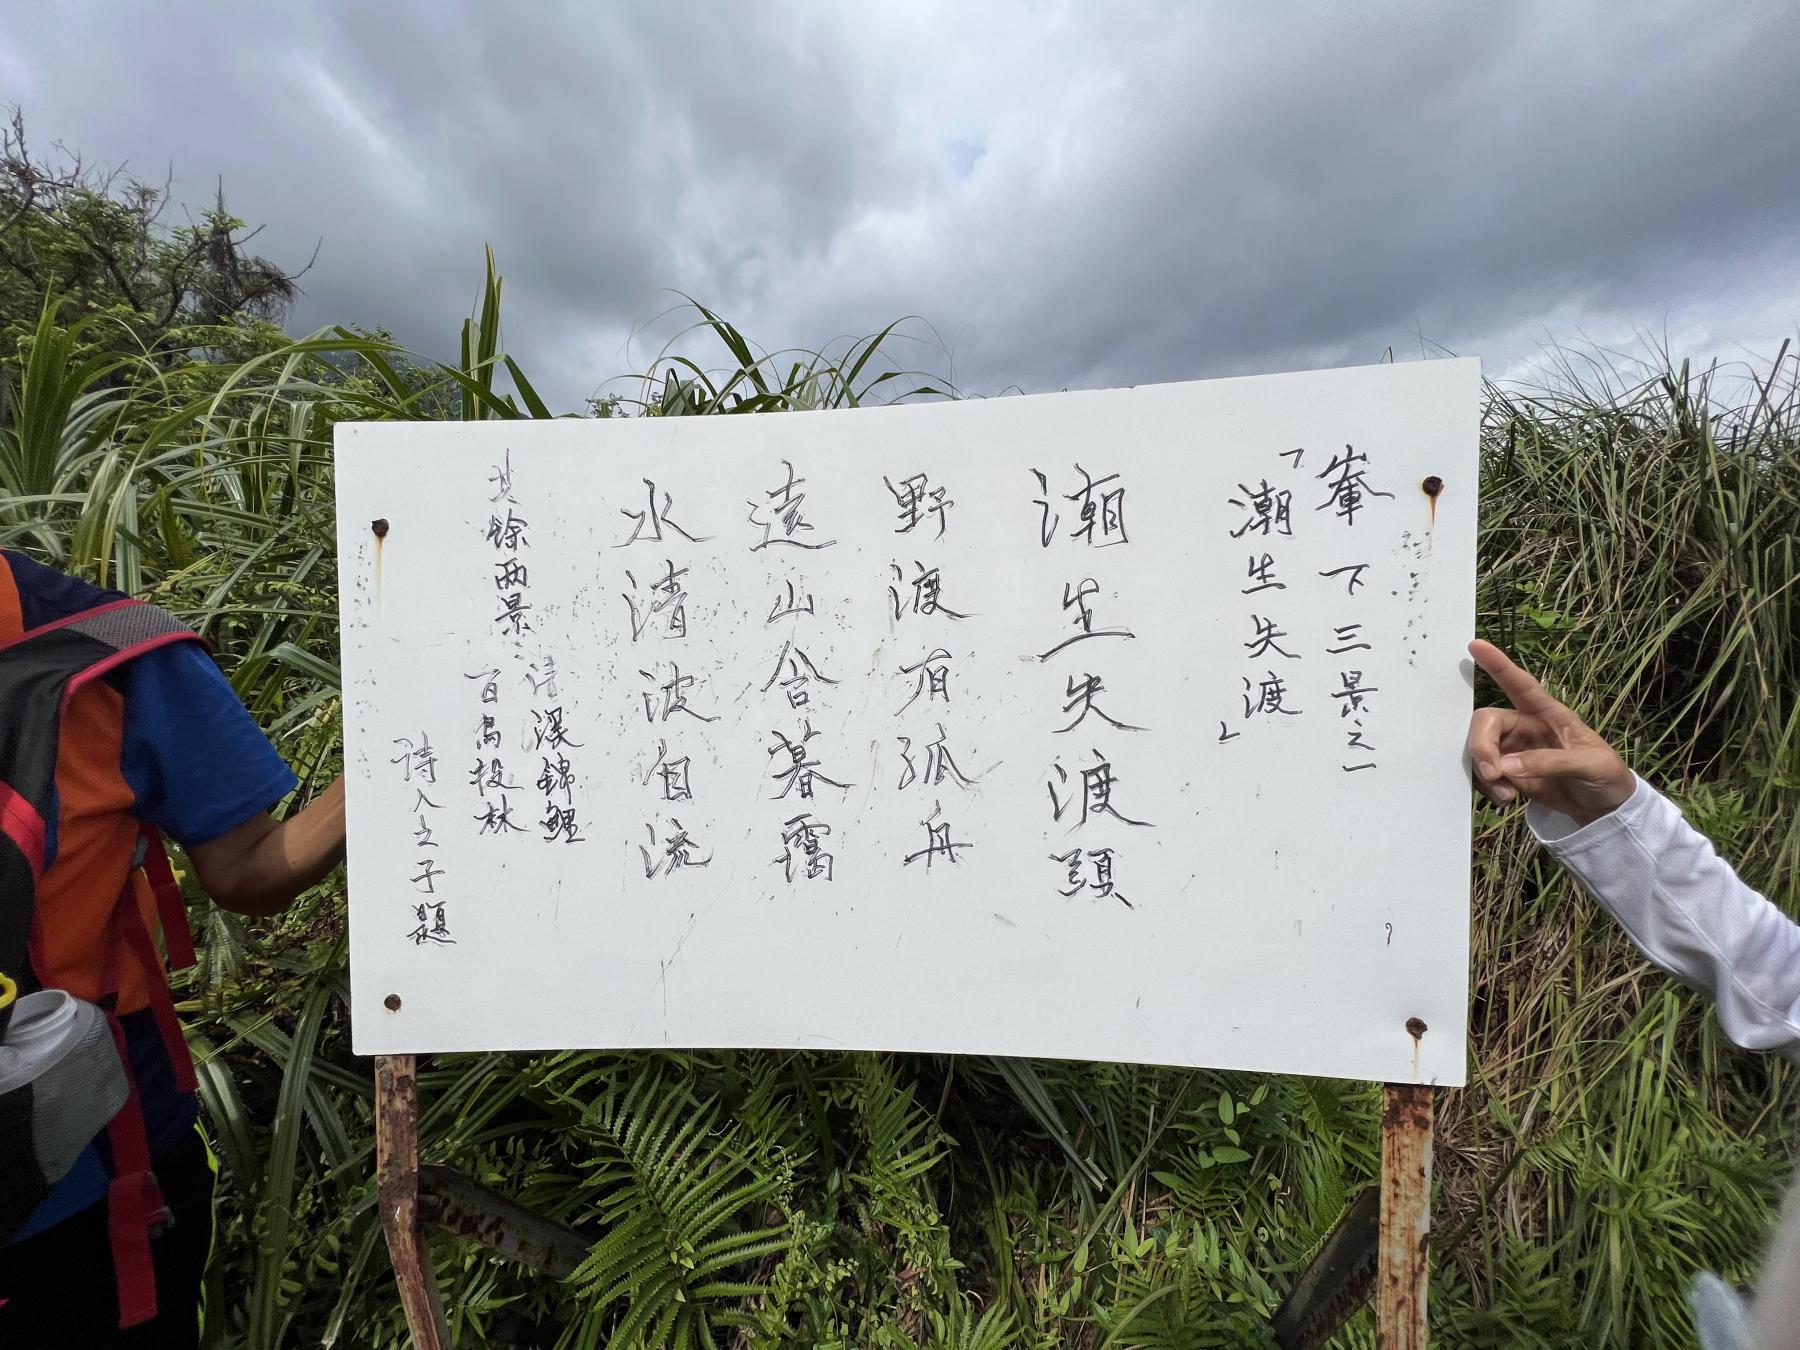 輋下三景之一
「潮生失渡」
潮生失渡頭
野渡有孤舟
遠山含暮靄
水清波自流
其餘兩景：
清溪錦鯉
百鳥投林
詩人之子題